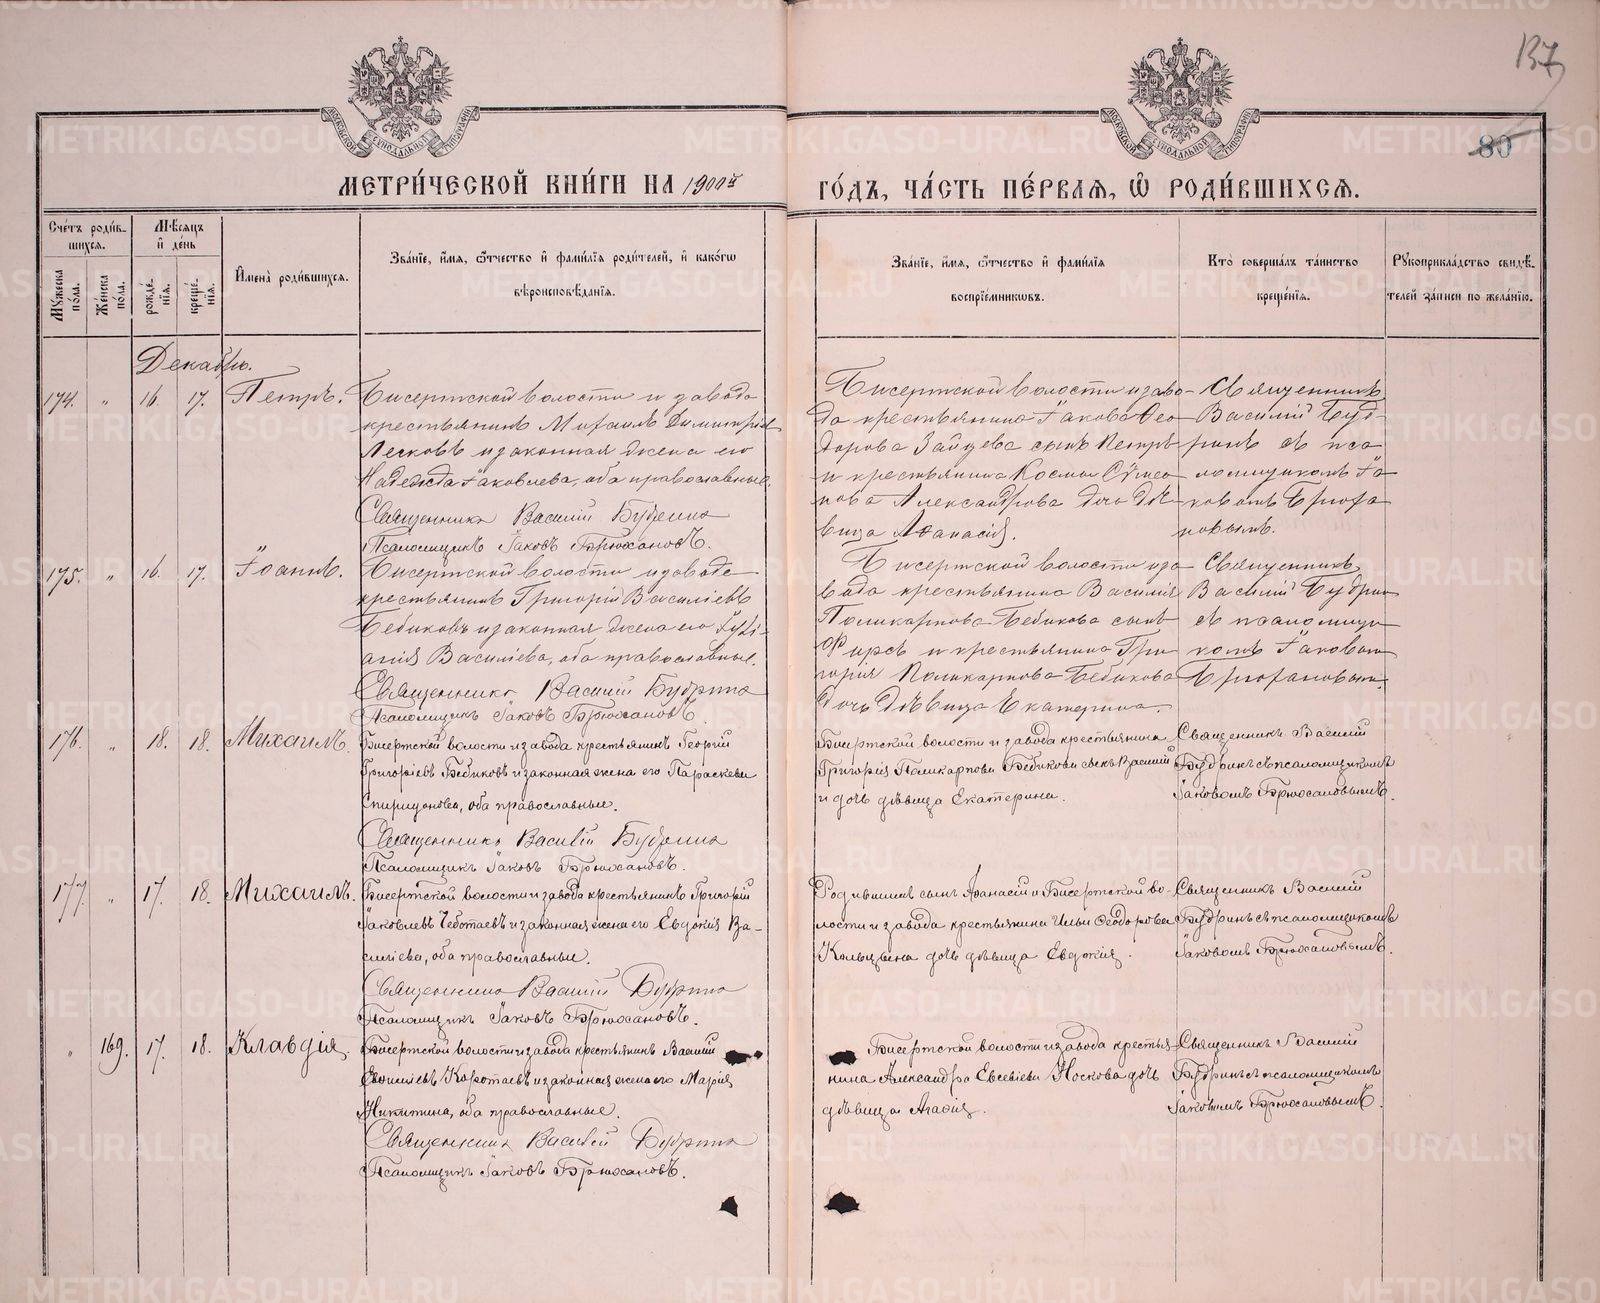 137
80
МЕТРИ́ЧЕСКОЙ КНИ́ГИ НА 1900й
ГО́ДЪ, ЧА́СТЬ ПЕ́РВАѦ, Ѡ҆ РОДИ́ВШИХСѦ.
Сче́тъ роди́в-
шихсѧ.
Мѣ́сѧцъ
и҆ де́нь
Мꙋ́жеска
по́ла.
Же́нска
по́ла.
рожде́-
нїѧ.
креще́-
нїѧ.
И҆мена̀ роди́вшихсѧ.
Зва́нїе, и҆́мѧ, ѻ҆́тчество и҆ фами́лїѧ роди́телей, и҆ како́гѡ
вѣроисповѣ́данїѧ.
Зва́нїе, и҆́мѧ, ѻ҆́тчество и҆ фами́лїѧ
воспрїе́мниковъ.
Кто̀ соверша́лъ та́инство
креще́нїѧ.
Рꙋкоприкла́дство свидѣ́-
телей за́писи по жела́нїю.
Декабрь.
174. " 16. 17. Петръ.
Бисертской волости и завода
крестьянинъ Михаилъ Димитріевъ
Лесковъ и законная жена его
Надежда Іаковлева, оба православные.
Священникъ Василій Будринъ
Псаломщикъ Іаковъ Брюхановъ.
Бисертской волости и заво-
да крестьянина Іакова Ѳео-
дорова Зайцева сынъ Петръ
и крестьянина Космы Сѵмео-
нова Александрова дочь дѣ-
вица Аѳанасія.
Священникъ
Василій Буд-
ринъ съ пса-
ломщикомъ Іа-
ковомъ Брюха-
новымъ.
175. " 16. 17. Іоаннъ.
Бисертской волости и завода
крестьянинъ Григорій Василіевъ
Бебиковъ и законная жена его Іулі-
анія Василіева, оба православные.
Священникъ Василій Будринъ
Псаломщикъ Іаковъ Брюхановъ.
Бисертской волости и за-
вода крестьянина Василія
Поликарпова Бебикова сынъ
Фирсъ и крестьянина Гри-
горія Поликарпова Бебикова
дочь дѣвица Екатерина.
Священникъ
Василій Будрин
съ псаломщи-
комъ Іаковомъ
Брюхановымъ.
176. " 18. 18. Михаилъ.
Бисертской волости и завода крестьянинъ Георгій
Григоріевъ Бебиковъ и законная жена его Параскева
Спиридонова, оба православные.
Священникъ Василій Будринъ
Псаломщикъ Іаковъ Брюхановъ.
Бисертской волости и завода крестьянина
Григорія Поликарпова Бебикова сынъ Василій
и дочь дѣвица Екатерина.
Священникъ Василій
Будринъ съ псаломщикомъ
Іаковомъ Брюхановымъ.
177. " 17. 18. Михаилъ.
Бисертской волости и завода крестьянинъ Григорій
Іаковлевъ Чеботаевъ и законная жена его Евдокія Ва-
силіева, оба православные.
Священникъ Василій Будринъ
Псаломщикъ Іаковъ Брюхановъ.
Родившихъ сынъ Аѳанасій и Бисертской во-
лости и завода крестьянина Ильи Ѳеодорова
Кольцына дочь дѣвица Евдокія.
Священникъ Василій
Будринъ съ псаломщикомъ
Іаковомъ Брюхановымъ.
" 169. 17. 18. Клавдія.
Бисертской волости и завода крестьянинъ Василій
Евѳиміевъ Коротаевъ и законная жена его Марія
Никитина, оба православные.
Священникъ Василій Будринъ
Псаломщикъ Іаковъ Брюхановъ.
Бисертской волости и завода крестья-
нина Александра Евсевіева Носкова дочь
дѣвица Агаѳія.
Священникъ Василій
Будринъ съ псаломщикомъ
Іаковомъ Брюхановымъ.
METRIKI.GASO-URAL.RU